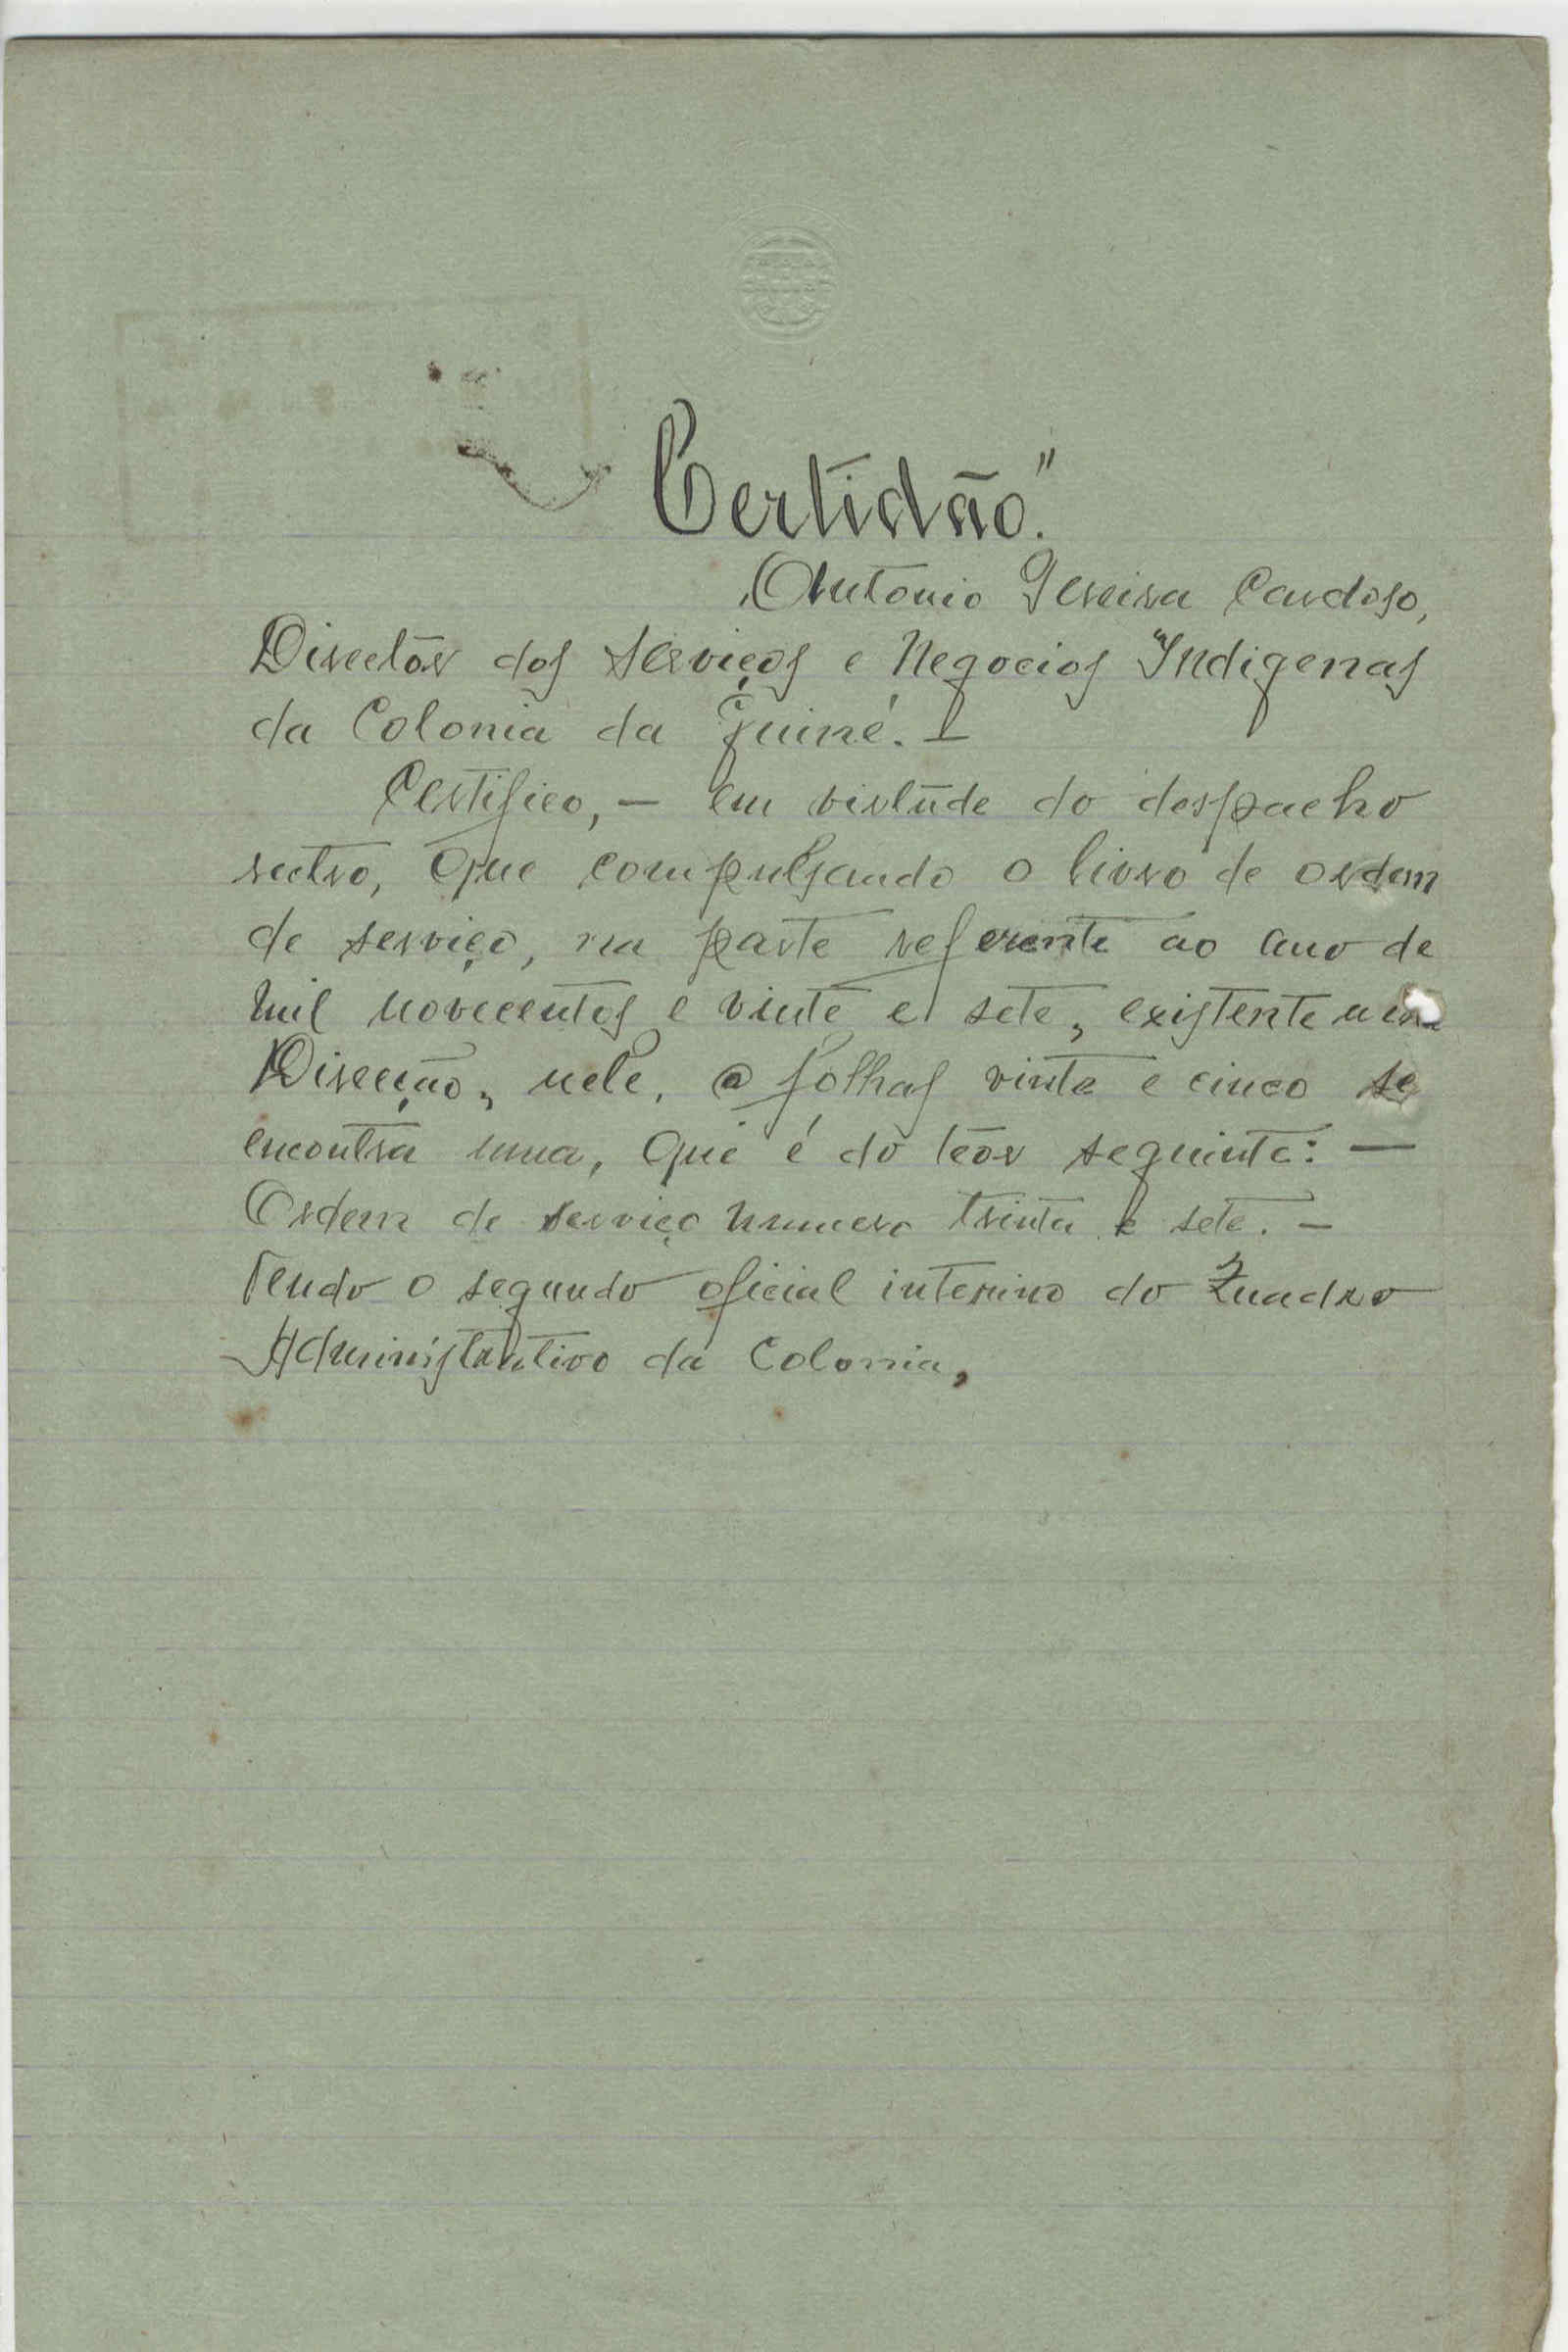 Certidão."
Antonio Pereira Cardoso,
Directôr dos Serviços e Negocios Indigenas
da Colonia da Guiné. —
Certifico, — em virtude do despacho
retro, que compulsando o livro de ordem
de serviço, na parte referente ao ano de
mil novecentos e vinte e sete, existente
Direcção, nele, a folhas vinte e cinco se
encontra uma, que é do teôr seguinte: —
Ordem de serviço numero trinta e sete. —
Tendo o segundo oficial interino do Quadro
Administrativo da Colonia,